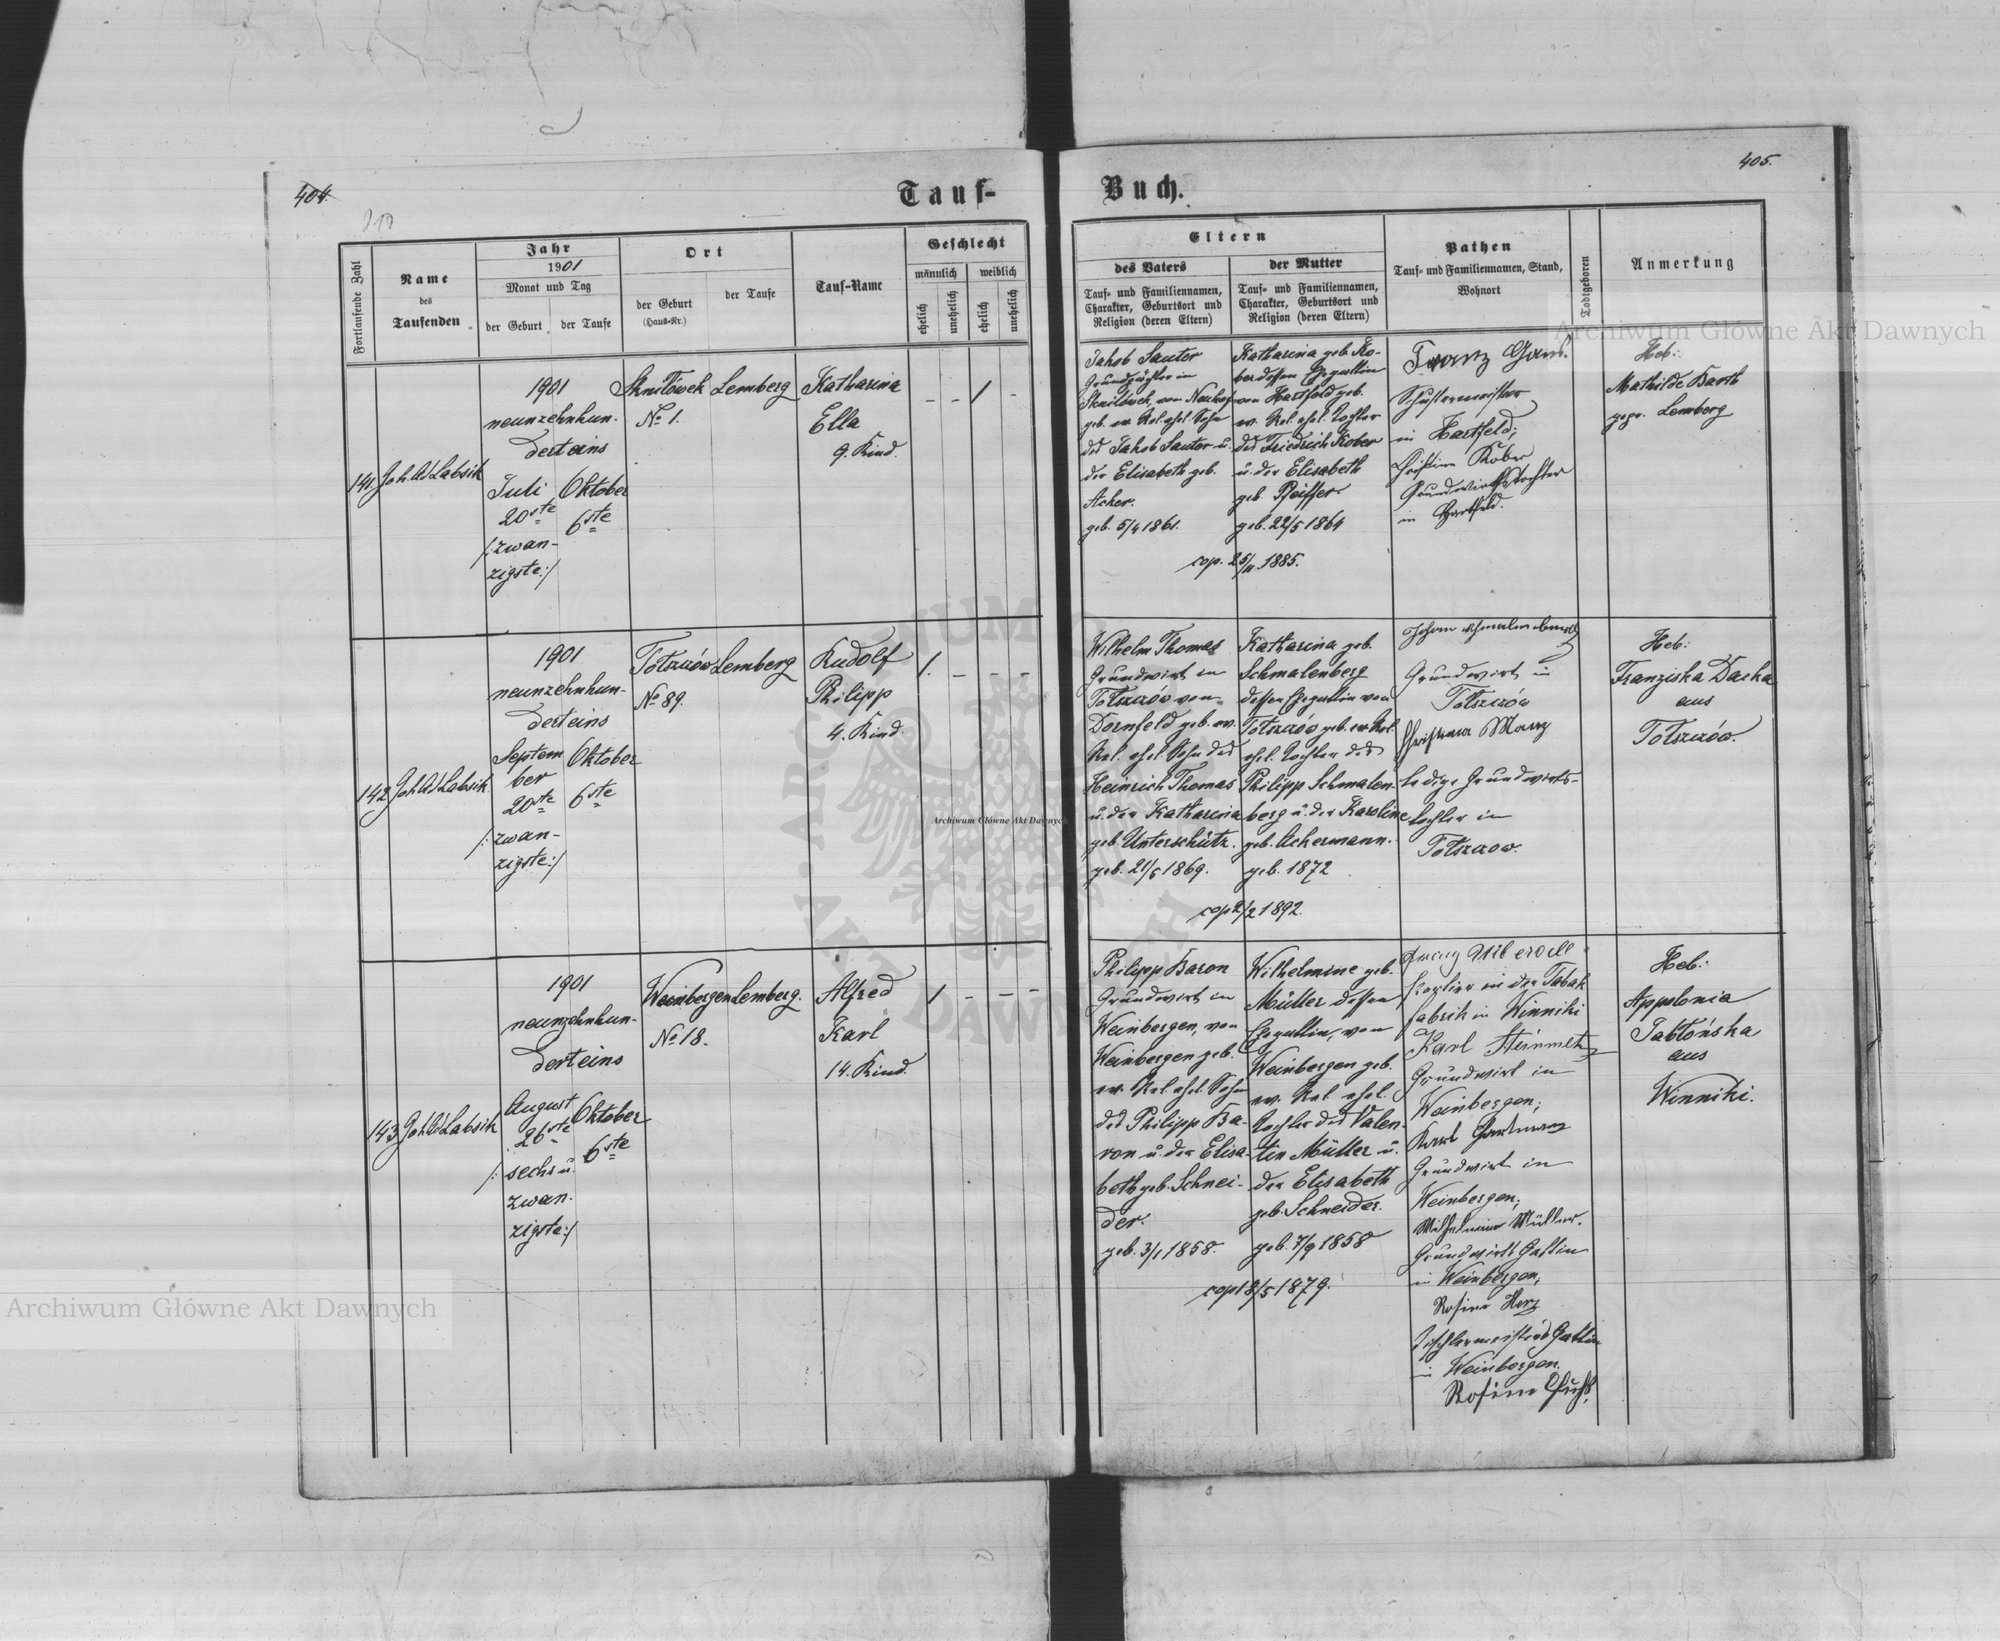 404.
210
Tauf-
Fortlaufende Zahl
Name
des
Taufenden
Jahr
1901
Monat und Tag
der Geburt
der Taufe
Ort
der Geburt
(Haus-Nr.)
der Taufe
Tauf-Name
Geschlecht
männlich
weiblich
ehelich
unehelich
ehelich
unehelich
141.
Joh. Ad. Labsik
1901
neunzehnhun-
derteins
Juli
20ste
/:zwan-
zigste:/
Oktober
6ste
Skniłówek
No 1.
Lemberg
Katharina
Ella
9. Kind.
– – 1 –
142
Joh. Ad. Labsik
1901
neunzehnhun-
derteins
Septem
ber
20ste
/:zwan-
zigste:/
Oktober
6ste
Tołszczów
No 89.
Lemberg
Rudolf
Philipp
4. Kind.
1. – – –
143
Joh. Ad. Labsik
1901
neunzehnhun-
derteins
August
26ste
/: sechs u.
zwan-
zigste:/
Oktober
6ste
Weinbergen
No 18.
Lemberg.
Alfred
Karl
14. Kind.
1 – – –
405.
Buch.
Eltern
des Vaters
Tauf- und Familiennamen,
Charakter, Geburtsort und
Religion (deren Eltern)
der Mutter
Tauf- und Familiennamen,
Charakter, Geburtsort und
Religion (deren Eltern)
Pathen
Tauf- und Familiennamen, Stand,
Wohnort
Todtgeboren
Anmerkung
Jakob Sauter
Grundpächter in
Skniłówek, von Neuhof
geb. ev. Rel. ehel. Sohn
des Jakob Sauter u.
der Elisabeth geb.
Acher.
geb. 5/4 1861.
Katharina geb. Ko-
ber dessen Ehegattin
von Hartfeld geb.
ev. Rel. ehel. Tochter
des Friedrich Kober
u. der Elisabeth
geb. Pfeiffer
geb. 22/5 1864
cop. 25/11 1885.
Franz Gans.
Schustermeister
in Hartfeld;
Christine Kober
Grundwirthstochter
in Hartfeld.
Heb.:
Mathilde Barth
gepr. Lemberg
Wilhelm Thomas
Grundwirt in
Tołszczów von
Dornfeld geb. ev.
Rel. ehel. Sohn des
Heinrich Thomas
u. der Katharina
geb. Unterschütz.
geb. 21/5 1869.
Katharina geb.
Schmalenberg
dessen Ehegattin von
Tołszczów geb. ev. Rel.
ehel. Tochter des
Philipp Schmalen-
berg u. der Karoline
geb. Ackermann.
geb. 1872
cop 2/2 1892.
Johann Schmalenberg
Grundwirt in
Tołszczów
Christina Manz
ledige Grundwirts-
tochter in
Tołszczow.
Heb:
Franziska Dacka
aus
Tołszczów.
Philipp Baron
Grundwirt in
Weinbergen, von
Weinbergen geb.
ev. Rel. ehel. Sohn
des Philipp Ba-
ron u. der Elisa-
beth geb. Schnei-
der.
geb. 3/1 1858.
Wilhelmine geb.
Müller dessen
Ehegattin, von
Weinbergen geb.
ev. Rel ehel.
Tochter des Valen-
tin Müller u.
der Elisabeth
geb. Schneider.
geb. 7/9 1858
cop 18/5 1879.
Portier in der Tabak
fabrik in Winniki
Karl Steinmetz
Grundwirt in
Weinbergen;
Karl Hartmann
Grundwirt in
Weinbergen;
Wilhelmine Müller.
Grundwirts Gattin
in Weinbergen;
Rosina Herz
Tischlermeisters Gattin
in Weinbergen.
Rosina
Heb.:
Appolonia
Jabłońska
aus
Winniki.
Archiwum Główne Akt Dawnych
Archiwum Główne Akt Dawnych
Archiwum Główne Akt Dawnych